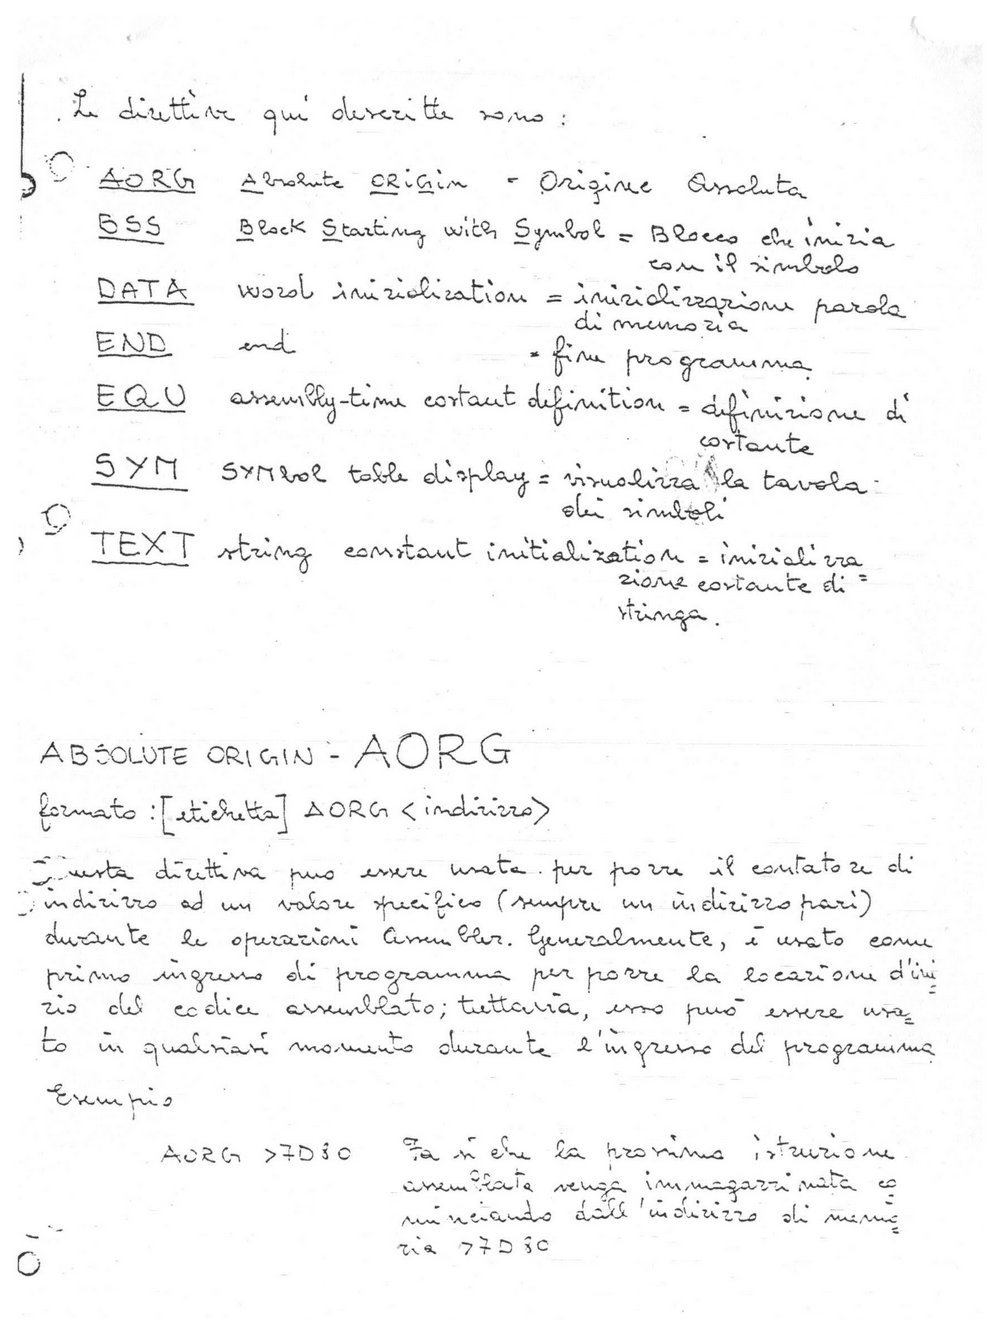 Le direttive qui descritte sono:
AORG Absolute ORiGin - Origine Assoluta
BSS Block Starting with Symbol = Blocco che inizia
con il simbolo
DATA word inizialization = inizializzazione parola
di memoria
END end = fine programma
EQU assembly-time costant definition = definizione di
costante
SYM SYMbol table display = visualizza la tavola
dei simboli
TEXT string constant initialization = inizializza
zione costante di =
stringa.
ABSOLUTE ORIGIN - AORG
formato : [etichetta] AORG <indirizzo>
Questa direttiva può essere usata per porre il contatore di
indirizzo ad un valore specifico (sempre un indirizzo pari)
durante le operazioni Assembler. Generalmente, è usato come
primo ingresso di programma per porre la locazione d'ini=
zio del codice assemblato; tuttavia, esso può essere usa=
to in qualsiasi momento durante l'ingresso del programma
Esempio
AORG >7D80 Fa sì che la prossima istruzione
assemblata venga immagazzinata co=
minciando dall'indirizzo di memo=
ria >7D80